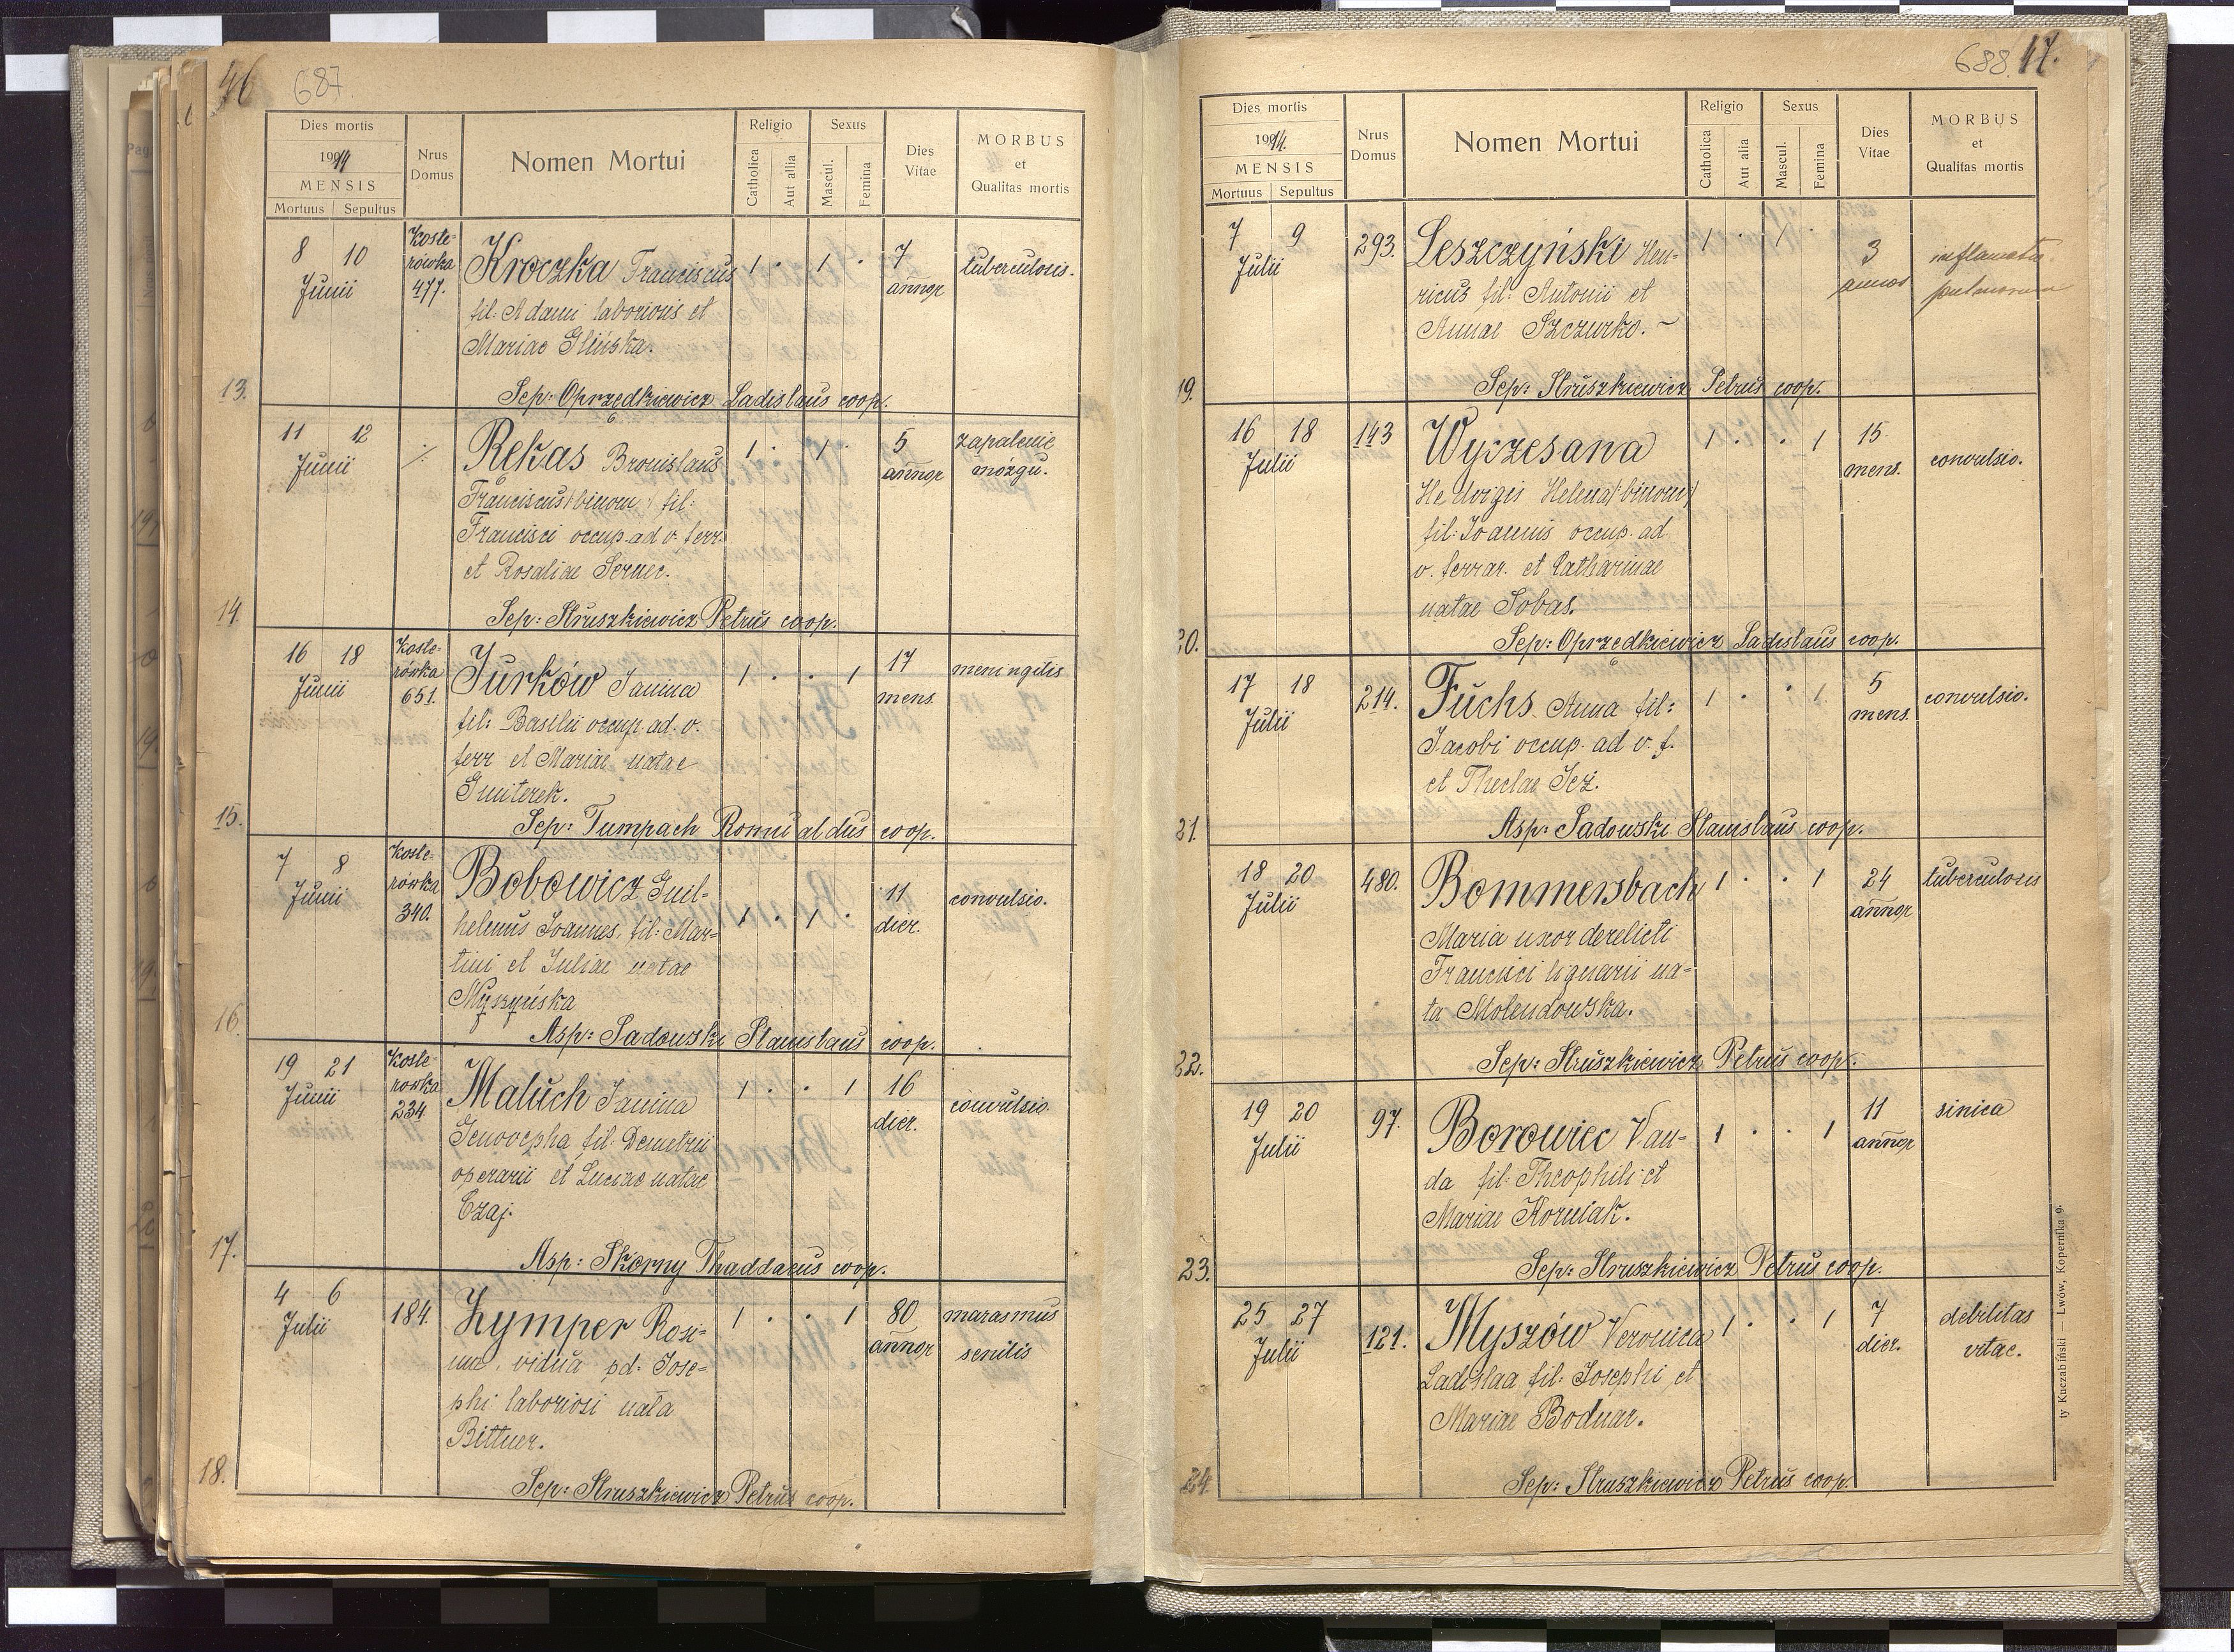 46 687.
Dies mortis
1914
MENSIS
Mortuus Sepultus
Nrus
Domus
Nomen Mortui
Religio
Catholica
Aut allia
Sexus
Mascul.
Femina
Dies
Vitae
MORBUS
et
Qualitas mortis
8 10
Junii
Koste-
rówka
477.
Kroczka Franciscus
fil: Adami laboriosis et
Mariae Glińska.
1 · 1 ·
7
annor
tuberculosis.
13.
Sep: Oprzędkiewicz Ladislaus coop.
11 12
Junii
·/·
Rekas Bronislaus
Franciscus (binom) fil:
Francisci occup. ad v. ferr.
et Rosaliae Sernec.
1 · 1 ·
5
annor
zapalenie
mózgu.
14.
Sep: Struszkiewicz Petrus coop.
16 18
Junii
Koste-
rówka
651.
Jurków Janina
fil: Basilii occup. ad. v.
ferr et Mariae natae
Gmiterek.
1 · · 1
17
mens
meningitis
15.
Sep: Tumpach Romualdus coop.
7 8
Junii
Koste-
rówka
340.
Bobowicz Guil-
helmus Joannes, fil: Mar-
tini et Juliae natae
Myszyńska
1 · 1 ·
11
dier.
convulsio.
16.
Asp: Sadowski Stanislaus coop.
19 21
Junii
Koste-
rowka
234
Maluch Janina
Genovepha fil: Demetrii
operarii et Luciae natae
Czaj.
1 · · 1
16
dier.
convulsio.
17.
Asp: Skorny Thaddaeus coop.
4 6
Julii
184.
Zymper Rosi-
na, vidua pd: Jose-
phi laboriosi nata
Bittner.
1 · · 1
80
annor
marasmus
senilis
18.
Sep: Struszkiewicz Petrus coop.
688. 47.
Dies mortis
1914.
MENSIS
Mortuus Sepultus
Nrus
Domus
Nomen Mortui
Religio
Catholica
Aut alia
Sexus
Mascul.
Femina
Dies
Vitae
MORBUS
et
Qualitas mortis
7 9
Julii
293.
Leszczyński Hen-
ricus fil: Antonii et
Annae Szczurko.
1 · 1 ·
3
annos
inflamatio
pulmonum
19.
Sep: Struszkiewicz Petrus coop.
16 18
Julii
143
Wyczesana
Hedvigis Helena (binom)
fil: Joannis occup. ad
v. ferrar. et Catharinae
natae Sobas.
1 · · 1
15
mens.
convulsio.
20.
Sep: Oprzędkiewicz Ladislaus coop.
17 18
Julii
214.
Fuchs Anna fil:
Jacobi occup. ad v. f.
et Theclae Jeż.
1 · · 1
5
mens.
convulsio.
21.
Asp: Sadowski Stanislaus coop.
18 20
Julii
480.
Bommersbach
Maria uxor derelicti
Francisci lignarii na-
ta Molendowska.
1 · · 1
24
annor
tuberculosis
22.
Sep: Struszkiewicz Petrus coop.
19 20
Julii
97.
Borowiec Van-
da fil: Theophili et
Mariae Korniak.
1 · · 1
11
annor
sinica
23.
Sep: Struszkiewicz Petrus coop.
25 27
Julii
121.
Myszów Veronica
Ladislaa fil: Josephi et
Mariae Bodnar.
1 · · 1
7
dier.
debilitas
vitae.
24.
Sep: Struszkiewicz Petrus coop.
ty Kuczabiński — Lwów, Kopernika 9.